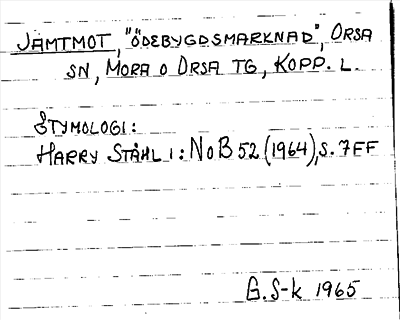 JÄMTMOT, "ÖDEBYGDSMARKNAD", ORSA
SN, MORA O ORSA TG, KOPP. L.
ETYMOLOGI:
HARRY STÅHL I: NOB 52 (1964), S. 7FF
G. S-k 1965